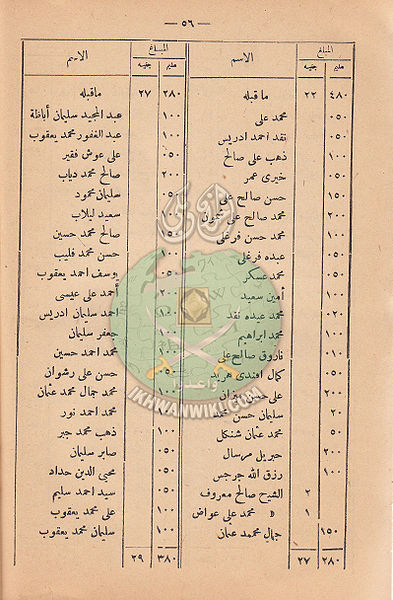 — ٥٦ —
المبلغ الاسم
مليم جنيه
٤٨٠ ٢٢ ما قبله
٠٥٠ محمد على
٠٥٠ نقد احمد ادريس
١٠٠ ذهب على صالح
٠٥٠ خيرى عمر
١٥٠ حسن صالح على
٢٠٠ محمد صالح على شمون
١٠٠ محمد حسن فرغلى
٠٥٠ عبده فرغلى
٠٥٠ محمد عسكر
١٠٠ أمين سعيد
٠٢٠ محمد عبده نقد
١٠٠ محمد ابراهيم
٠١٠ فاروق صالح على
٠٥٠ كمال افندى
٢٠٠ على حسن
٢٠ سليمان حسن
٥٠ محمد عثمان شنكل
٢٠٠ جبريل مرسال
١٠٠ رزق الله جرجس
٢ الشيخ صالح معروف
١ » محمد على عواض
١٥٠ جمال محمد عثمان
٢٨٠ ٢٧
المبلغ الاسم
مليم جنيه
٢٨٠ ٢٧ ماقبله
١٠٠ عبد المجيد سليمان أباظة
١٠٠ عبد الغفور محمد يعقوب
٠٥٠ على عوش فقير
٢٠٠ صالح محمد دياب
٠٥٠ سليمان محمود
١٠٠ سعيد لبلاب
١٥٠ صالح محمد حسين
١٠٠ حسن محمد قليب
٠٥٠ يوسف احمد يعقوب
٢٠٠ أحمد على عيسى
احمد سليمان ادريس
١٠٠ جعفر سليمان
١٠٠ محمد احمد حسين
٠٥٠ حسن على رشوان
٢٠٠ محمد جمال محمد عثمان
١٠٠ محمد احمد نور
١٠٠ ذهب محمد جبر
٠٥٠ صابر سليمان
٠٥٠ محيى الدين حداد
٠٥٠ سيد احمد سليم
١٠٠ على محمد يعقوب
١٠٠ سليمان محمد يعقوب
٣٨٠ ٢٩
واعدوا
IKHWANWIKI.COM